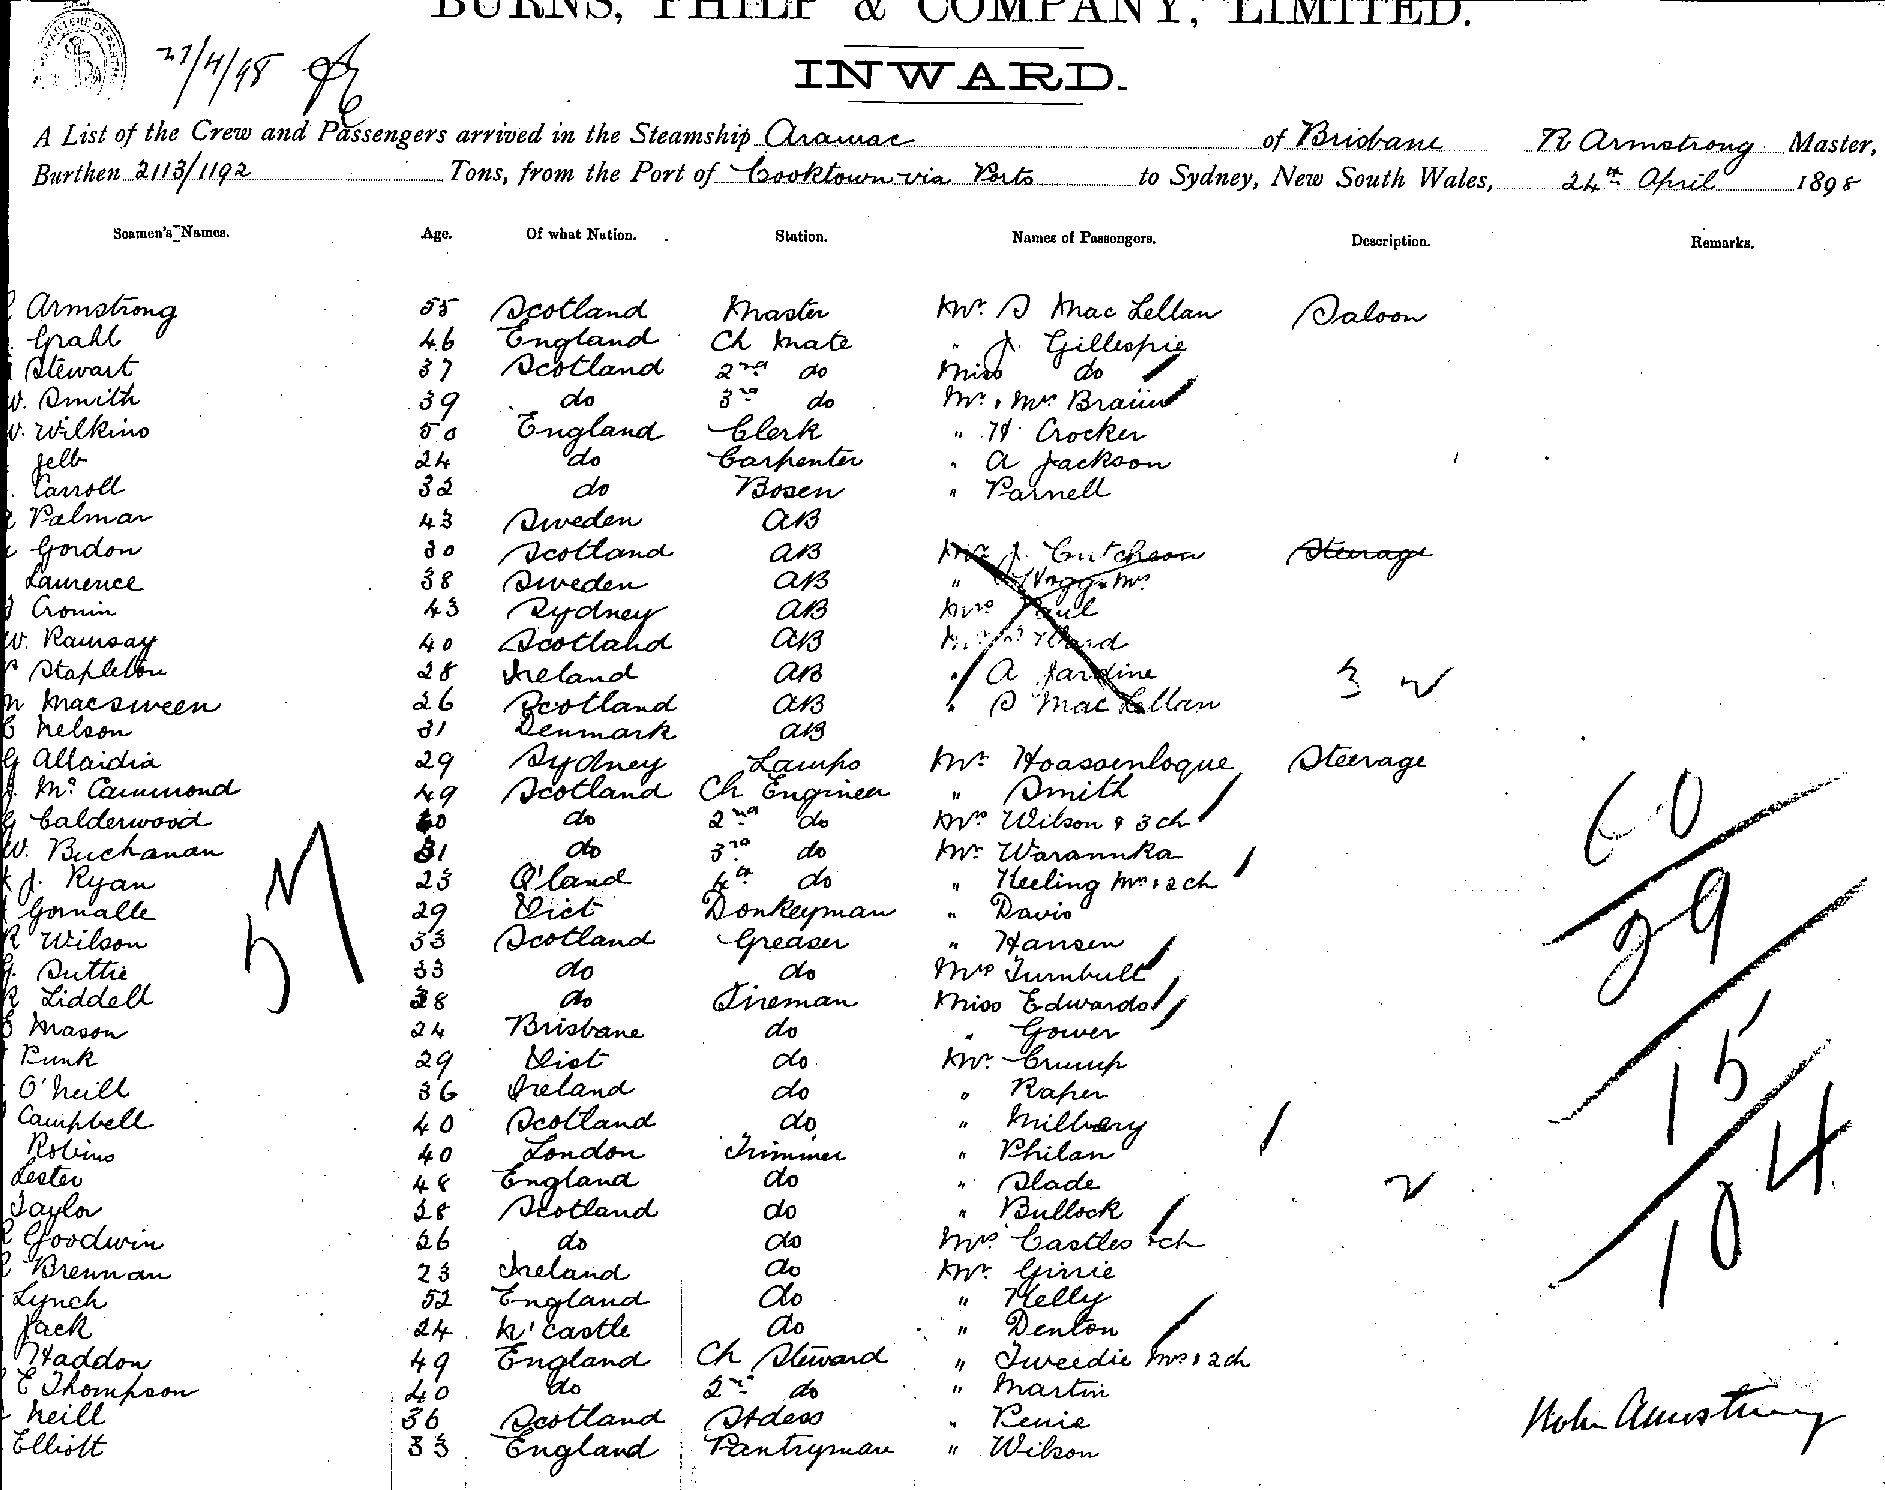 BURNS, PHILP & COMPANY, LIMITED.
27/4/98
INWARD.
A List of the Crew and Passengers arrived in the Steamship Aramac of Brisbane R Armstrong Master,
Burthen 2113/1192 Tons, from the Port of Cooktown via Ports to Sydney, New South Wales, 24th April 1898
Seamen's Names. Age. Of what Nation. Station. Names of Passengers. Description. Remarks.
Armstrong 55 Scotland Master Mr. D Mac Lellan Saloon
Grahl 46 England Ch Mate " J. Gillespie
Stewart 37 Scotland 2nd do Miss do
W. Smith 39 do 3rd do Mr. & Mrs Braiin
W. Wilkins 50 England Clerk " H. Crocker
Jelb 24 do Carpenter " A Jackson
Carroll 32 do Bosen " Parnell
Palmar 43 Sweden AB
Gordon 30 Scotland AB Mr J. Cutcheon Steerage
Laurence 38 Sweden AB " Hogg & Mrs
Cronin 43 Sydney AB Mrs Paul
W. Ramsay 40 Scotland AB Ward
Stapleton 28 Ireland AB " A Jardine 3
M Macsween 26 Scotland AB " D Mac Lellan
C Nelson 31 Denmark AB
G Allaidia 29 Sydney Lamps Mr. Hoassenloque Steerage
J. McCammond 49 Scotland Ch Engineer " Smith
G Calderwood 30 do 2nd do Mrs Wilson & 3 ch
W. Buchanan 31 do 3rd do Mr. Warannka
J. Ryan 23 Q'land 4th do " Keeling Mrs & 2 ch
Gornalle 29 Vict Donkeyman " Davis
R Wilson 33 Scotland Greaser " Hansen
G. Suttie 33 do do Mrs Turnbull
R Liddell 38 do Fireman Miss Edwards
E Mason 24 Brisbane do " Gower
Punk 29 Vict do Mr. Crump
O'Neill 36 Ireland do " Raper
Campbell 40 Scotland do " Milbery
Robins 40 London Trimmer " Philan
Lester 48 England do " Slade
Taylor 28 Scotland do " Bullock
Goodwin 26 do do Mrs Castles & ch
Brennan 23 Ireland do Mr. Girrie
Lynch 52 England do " Kelly
Jack 24 N'castle do " Denton
Haddon 49 England Ch Steward " Tweedie Mrs & 2 ch
E Thompson 40 do 2nd do " Martin
Neill 36 Scotland Stdess " Penie
Elliott 33 England Pantryman " Wilson
57
60
29
15
104
Robn Armstrong